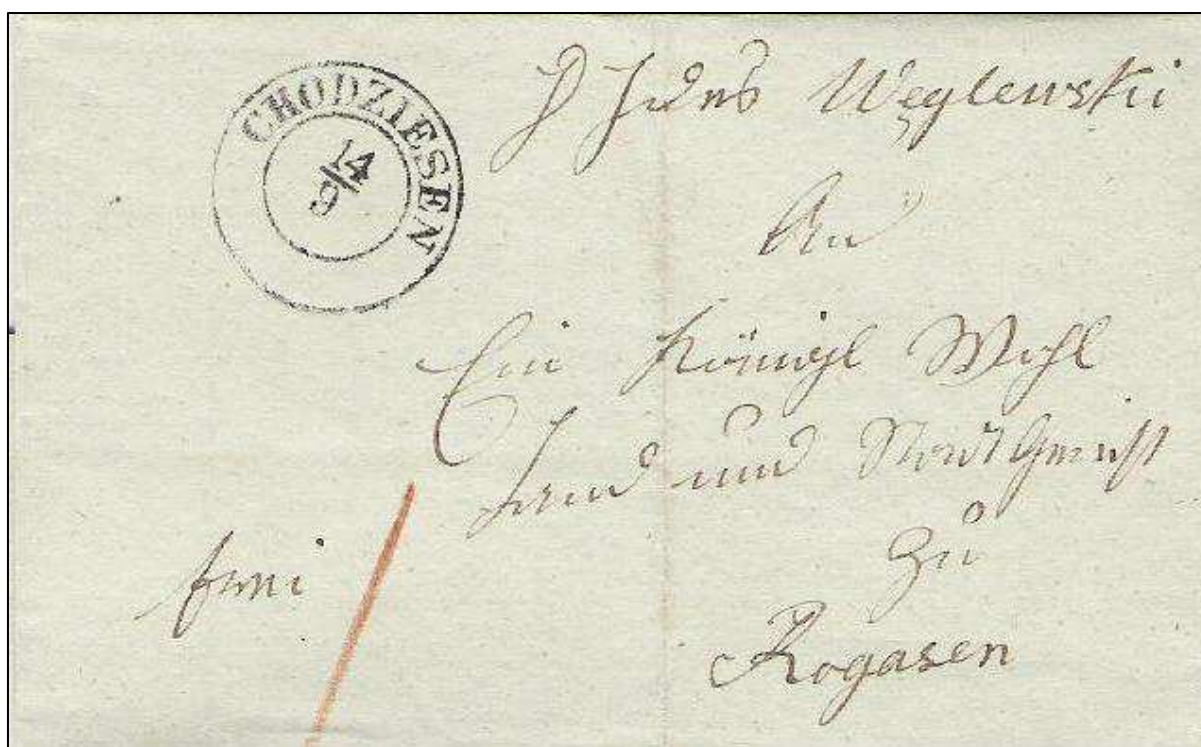 CHODZIESEN
14/9
Węglewski
An
Ein Königl Wohl
Land und Stadt Gericht
zu
frei
Rogasen